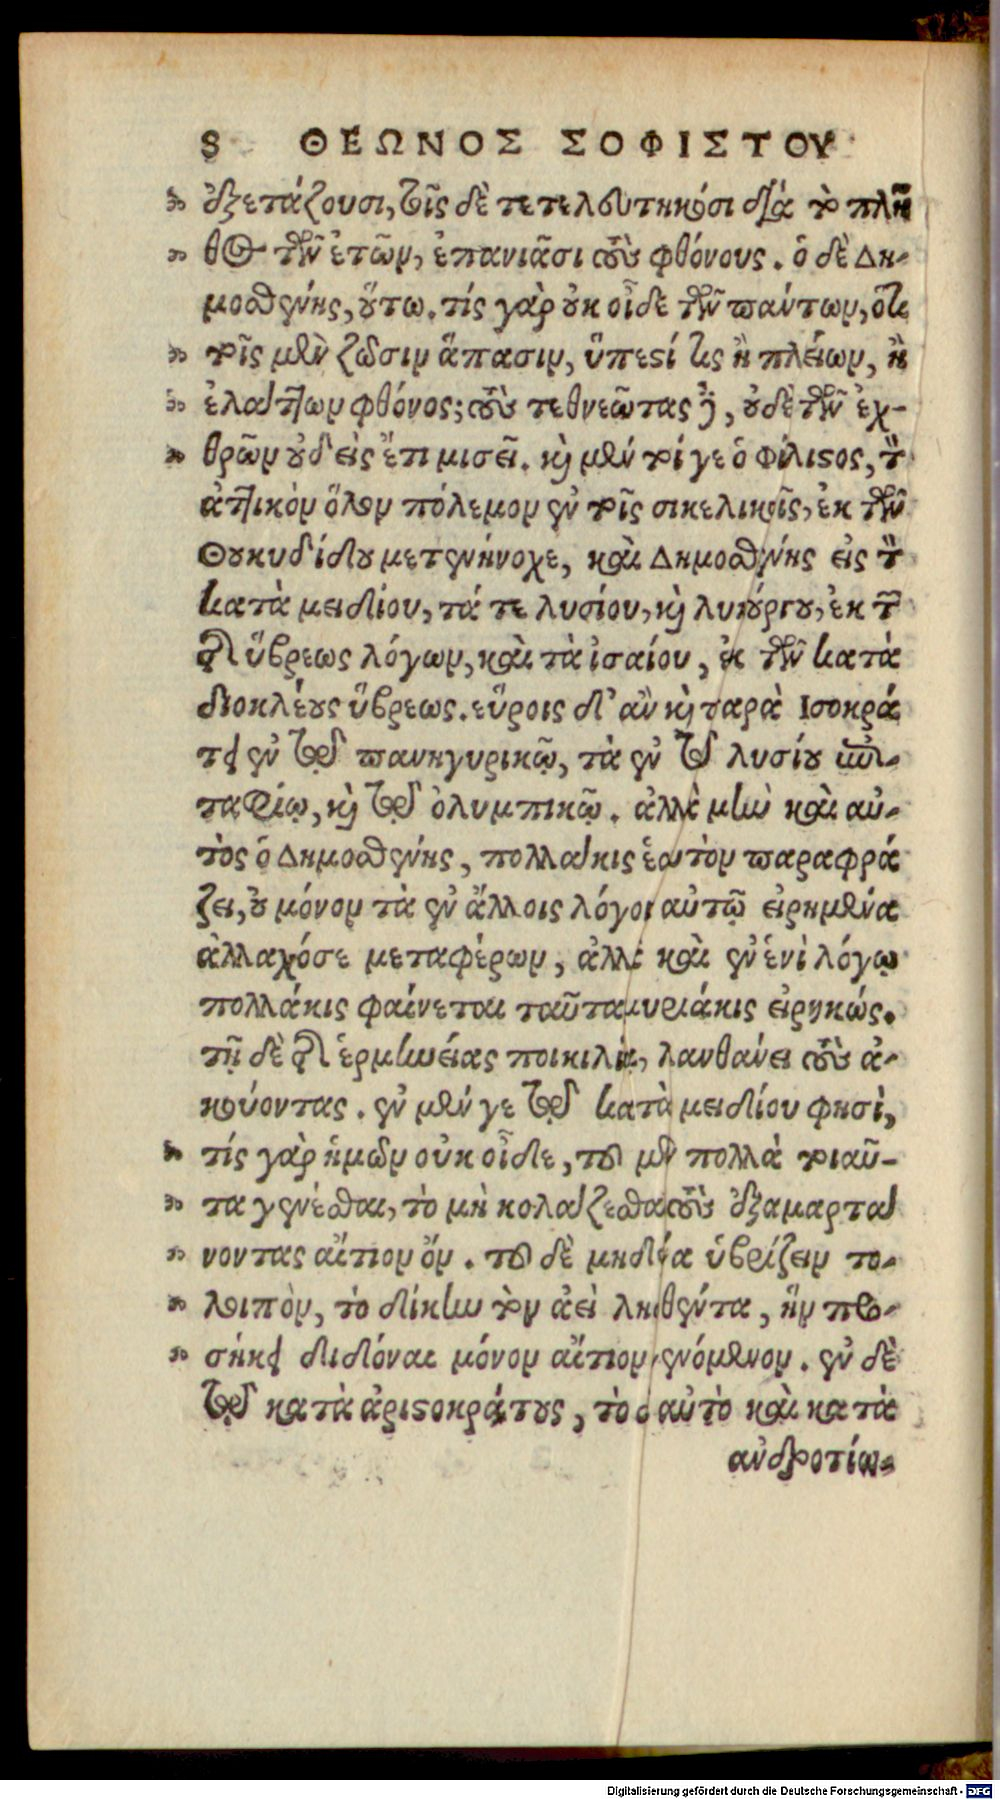 8 ΘΕΩΝΟΣ ΣΟΦΙΣΤΟΥ
ἐξετάζουσι, τοῖς δὲ τετελευτηκόσι διὰ τὸ πλῆ
θος τῶν ἐτῶν, ἐπανιᾶσι τοὺς φθόνους. ὁ δὲ Δη-
μοσθένης, οὕτω. τίς γὰρ οὐκ οἶδε τῶν πάντων, ὅτι
τοῖς μὲν ζῶσιν ἅπασιν, ὕπεστί τις ἢ πλείων, ἢ
ἐλάττων φθόνος; τοὺς τεθνεῶτας δὲ, οὐδὲ τῶν ἐχ-
θρῶν οὐδεὶς ἔτι μισεῖ. καὶ μέν τοί γε ὁ Φίλιστος, τὸν
ἀττικὸν ὅλον πόλεμον ἐν τοῖς σικελικοῖς, ἐκ τῶν
Θουκυδίδου μετενήνοχε, καὶ Δημοσθένης εἰς τὸν
κατὰ μειδίου, τά τε λυσίου, καὶ λυκούργου, ἐκ τῶν
τῆς ὕβρεως λόγων, καὶ τὰ ἰσαίου, ἐκ τῶν κατὰ
διοκλέους ὕβρεως. εὕροις δ' ἂν καὶ παρὰ Ισοκρά
τει ἐν τῷ πανηγυρικῷ, τὰ ἐν τῷ λυσίου ἐπι-
ταφίῳ, καὶ τῷ ὀλυμπικῷ. ἀλλὰ μὴν καὶ αὐ-
τὸς ὁ Δημοσθένης, πολλάκις ἑαυτὸν παραφρά
ζει, οὐ μόνον τὰ ἐν ἄλλοις λόγοις αὐτῷ εἰρημένα
ἀλλαχόσε μεταφέρων, ἀλλὰ καὶ ἐν ἑνὶ λόγῳ
πολλάκις φαίνεται ταῦτα μυριάκις εἰρηκώς.
τῇ δὲ τῆς ἑρμηνείας ποικιλίᾳ, λανθάνει τοὺς ἀ-
κούοντας. ἐν μέν γε τῷ κατὰ μειδίου φησὶ,
τίς γὰρ ἡμῶν οὐκ οἶδε, τοῦ μὲν πολλὰ τοιαῦ-
τα γενέσθαι, τὸ μὴ κολάζεσθαι τοὺς ἐξαμαρτά
νοντας αἴτιον ὄν. τοῦ δὲ μηδένα ὑβρίζειν το-
λοιπὸν, τὸ δίκην τὸν ἀεὶ ληφθέντα, ἣν προ-
σήκει διδόναι μόνον αἴτιον γενόμενον. ἐν δὲ
τῷ κατὰ ἀριστοκράτους, τὸ δ' αὐτὸ καὶ κατὰ
ἀνδροτίω-
Digitalisierung gefördert durch die Deutsche Forschungsgemeinschaft - DFG